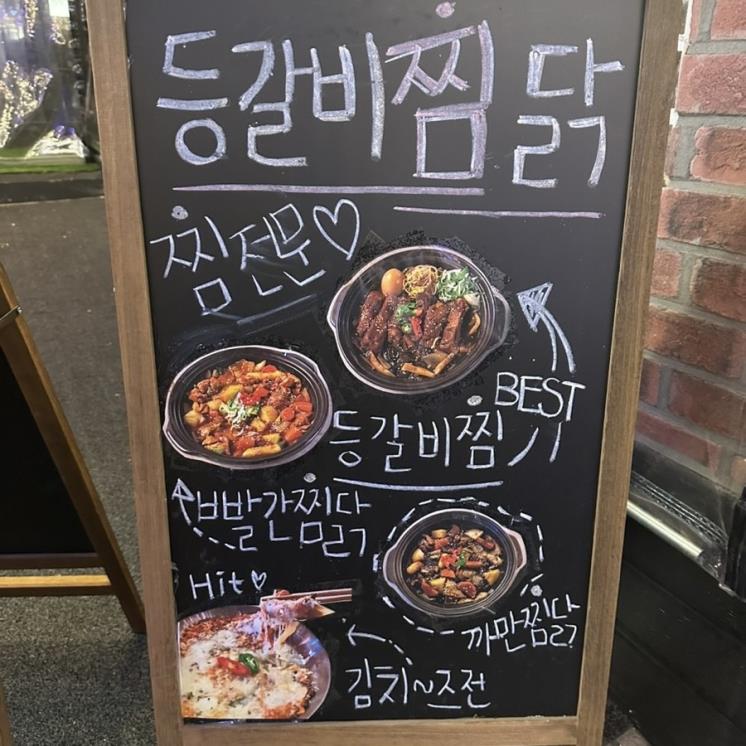 등갈비찜닭
찜전문♡
BEST
등갈비찜
빨간찜닭
Hit♡
까만찜닭
김치~즈전